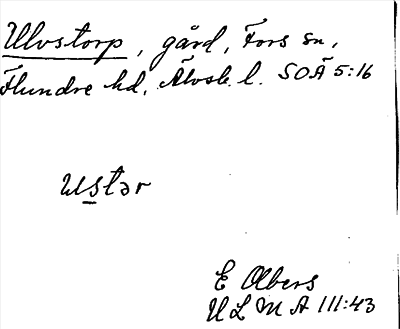 Ulvstorp, gård, Fors sn,
Flundre hd, Älvsb. l. SOÄ 5:16
Ustər
E Olbers
ULMA 111:43